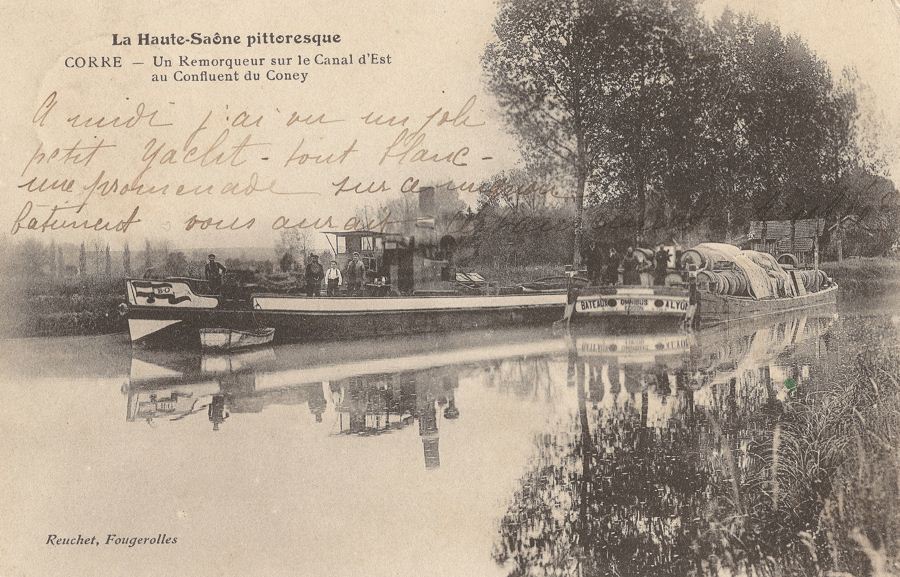 La Haute-Saône pittoresque
CORRE — Un Remorqueur sur le Canal d'Est
au Confluent du Coney
A midi j'ai vu un joli
petit Yacht - tout blanc -
une promenade sur ce mignon
bâtiment vous aurait
B·O
BATEAUX OMNIBUS A LYON
Reuchet, Fougerolles